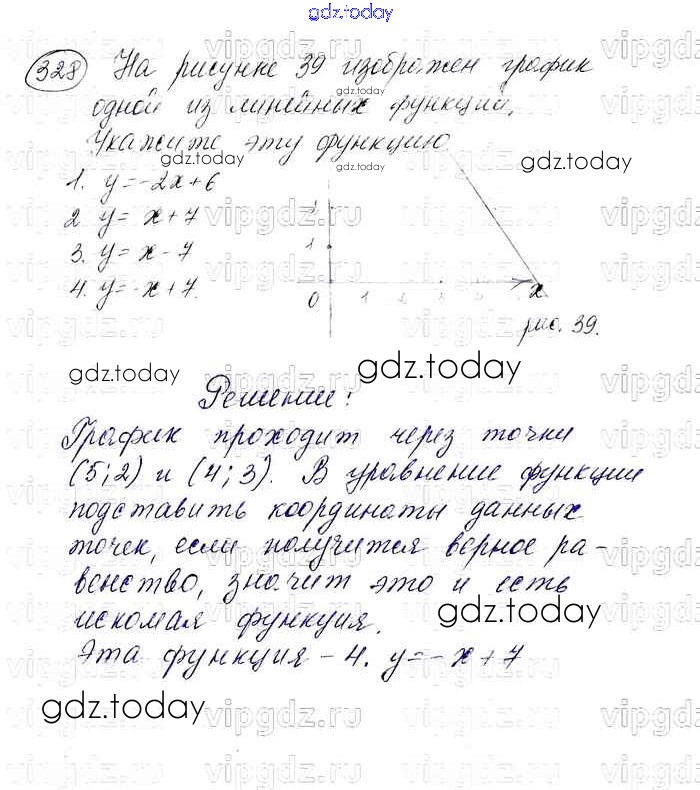 gdz.today
328 На рисунке 39 изображен график
одной из линейных функций.
Укажите эту функцию
gdz.today gdz.today
1. y=-2x+6
2 y= x+7
3. y= x-7
4. y=-x+7.
1
0 1 2 x
рис. 39.
gdz.today gdz.today
Решение:
График проходит через точки
(5;2) и (4;3). В уравнение функции
подставить координаты данных
точек, если получится верное ра-
венство, значит это и есть
искомая функция.
gdz.today
Эта функция - 4. y=-x+7
gdz.today
vipgdz.ru